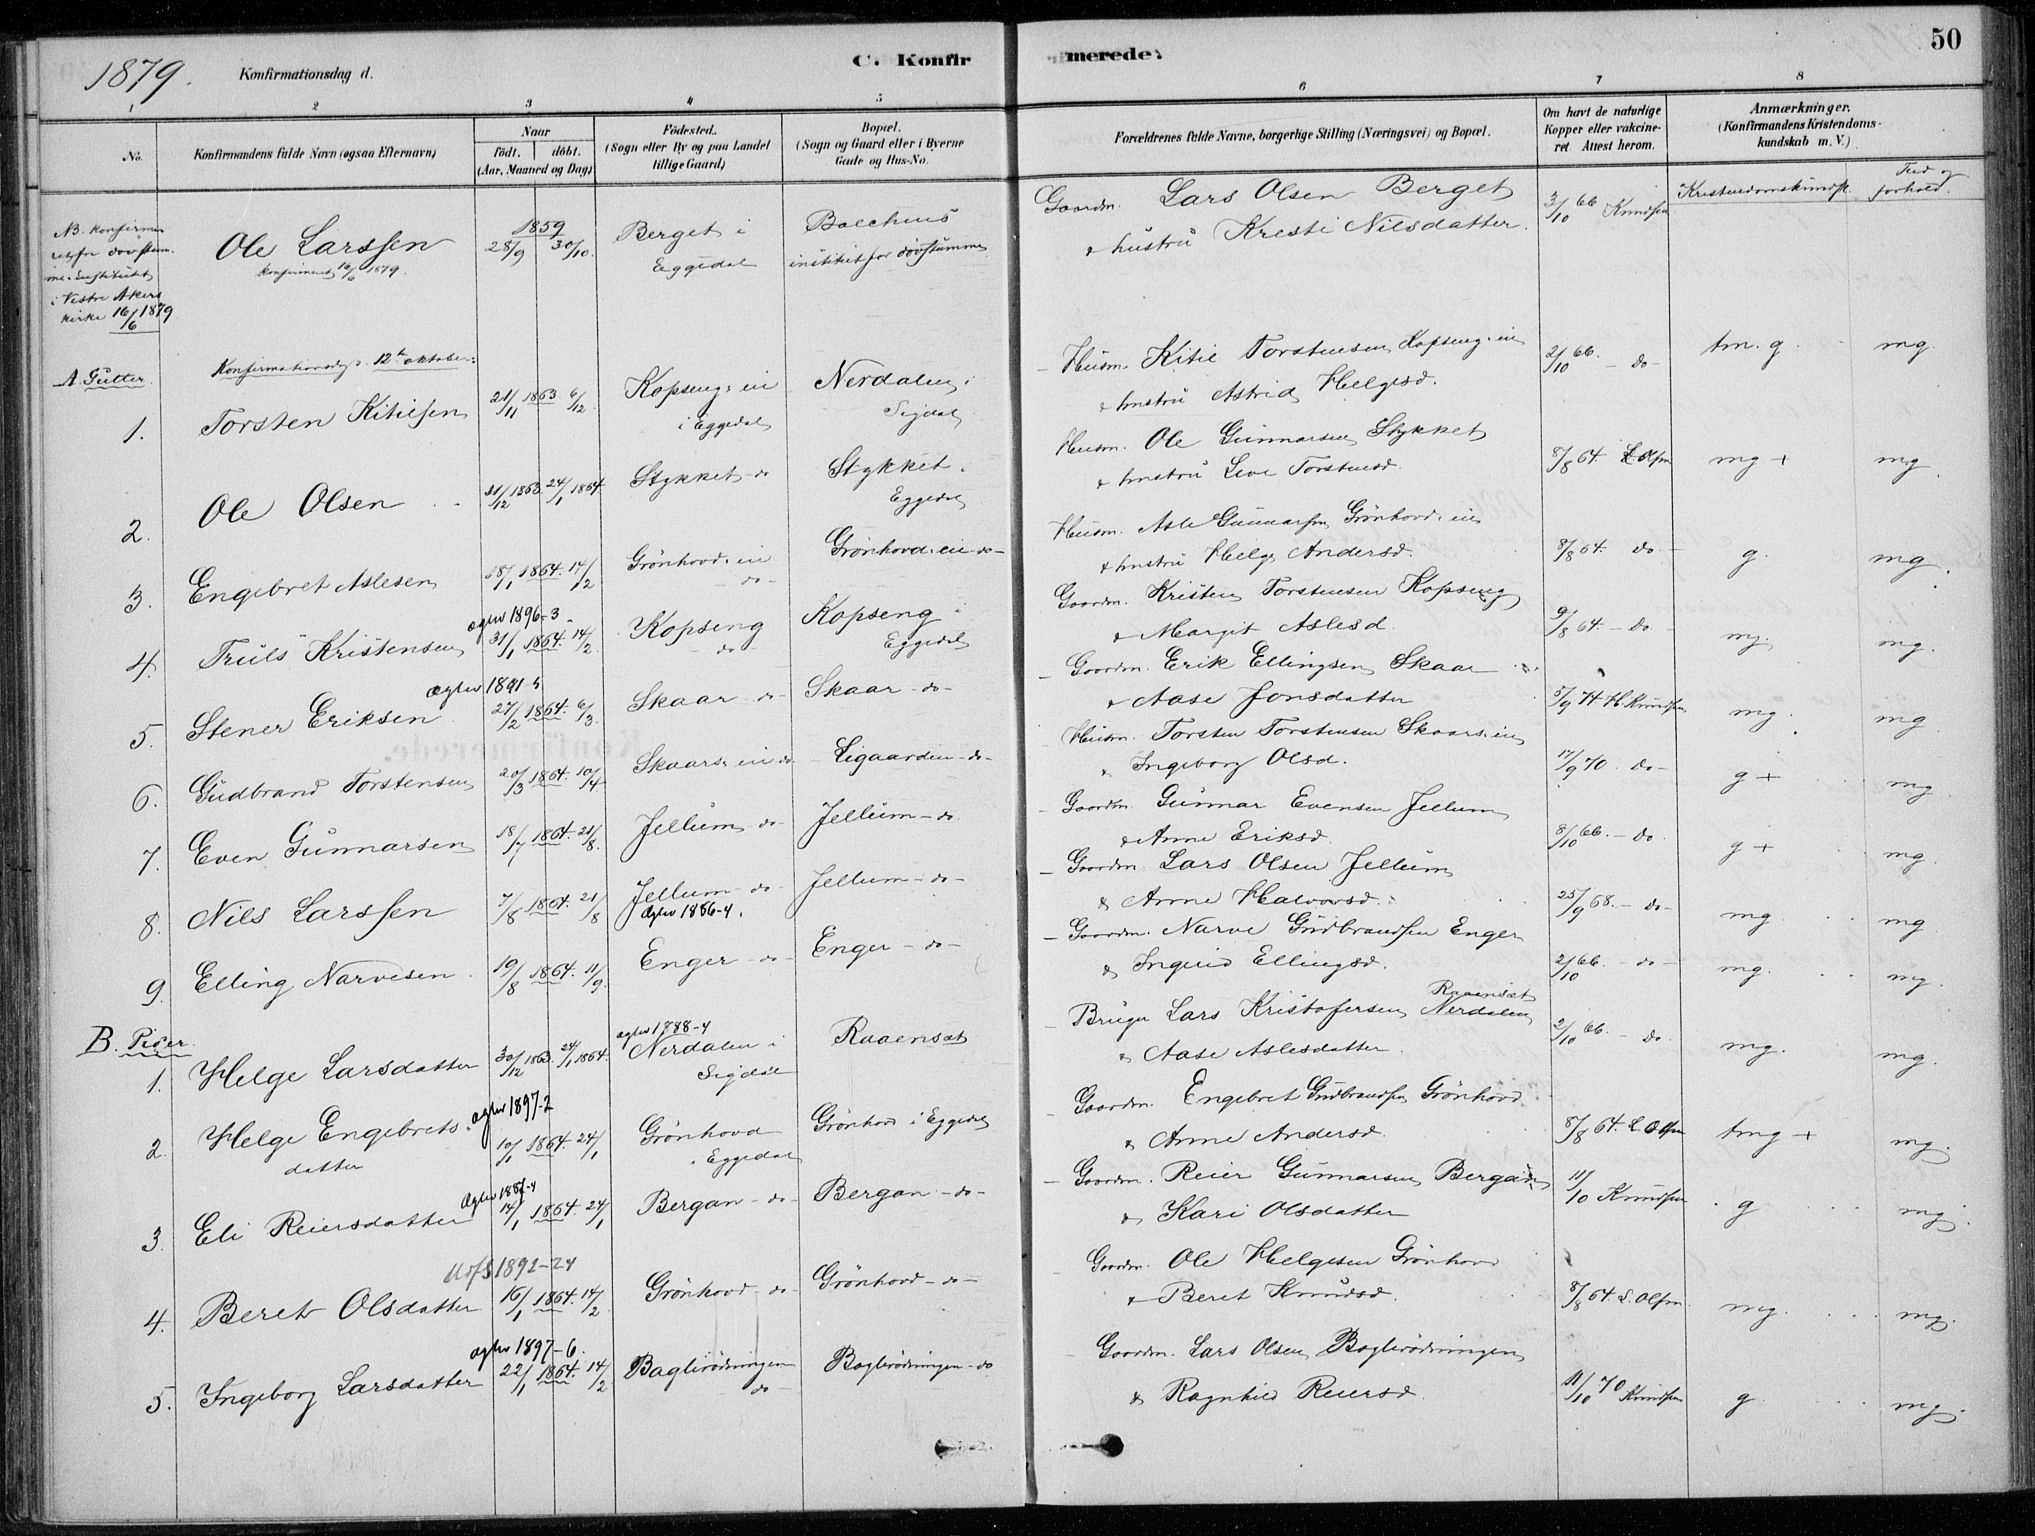 1879. Konfirmationsdag d. C. Konfirmerede. 50
1 2 3 4 5 6 7 8
No. Konfirmandens fulde Navn (ogsaa Efternavn) Naar født. døbt. (Aar, Maaned og Dag) Fødested. (Sogn eller By og paa Landet tillige Gaard) Bopæl. (Sogn og Gaard eller i Byerne Gade og Hus-No. Forældrenes fulde Navne, borgerlige Stilling (Næringsvei) og Bopæl. Om havt de naturlige Kopper eller vakcineret. Attest herom. Anmærkninger. (Konfirmandens Kristendomskundskab m. V.)
Kristendomskundsk. Flid og forhold.
NB. Konfirmeret for døvstumme Institutet i Vestre Akers kirke 16/6 1879
Ole Larssen 1859 28/9 30/10 Berget i Eggedal institut for døvstumme Gaardm. Lars Olsen Berget & hustru Kristi Nilsdatter. 3/10 66 Knudsen
konfirmeret 16/6 1879.
A. Gutter. Konfirmationsdag d. 12te oktober:
1. Torsten Kitilsen 21/11 1863. 6/12. Kopseng. ei i Eggedal Nerdalen i Sigdal Husm. Kitil Torstensen Kopseng. ei & hustru Astrid Helgesd. 2/10 66. - do - tm. g. mg.
2. Ole Olsen 31/12 1863. 24/1 1864. Stykket - do Stykket i Eggedal Husm. Ole Gunnarsen Stykket & hustru Live Torstensd. 8/8 64. L Olsen mg + mg.
3. Engebret Aslesen 18/1 1864. 14/2 Grönhovd. ei - do - Grönhovd. ei - do - Husm. Asle Gunnarsen Grönhovd. ei & hustru Helge Andersd. 8/8 64. do - g. mg.
ægtev 1896-3
4. Truls Kristensen 31/1 1864. 14/2. Kopseng - do - Kopseng i Eggedal Gaardm. Kristen Torstensen Kopseng & Margit Aslesd. 9/8 64. - do - mg. mg.
ægtev 1891-5
5. Stener Eriksen 27/2 1864. 6/3. Skaar - do - Skaar - do - Gaardm. Erik Ellingsen Skaar & Aase Jonsdatter 5/9 74 H Knudsen mg. mg
6. Gudbrand Torstensen 20/3 1864. 10/4 Skaars. ei do Ligaarden - do - Husm. Torsten Torstensen Skaars. ei & Ingeborg Olsd. 17/9 70. do - g + mg
7. Even Gunnarsen 18/7 1864. 21/8. Jellum - do - Jellum - do Gaardm. Gunnar Evensen Jellum & Anne Eriksd. 8/10 66. - do g + mg.
8. Nils Larssen 7/8 1864. 21/8 Jellum - do - Jellum - do - Gaardm. Lars Olsen Jellum & Anne Halvorsd. 25/9 68. - do - mg. mg
Ægtev 1886-4.
9. Elling Narvesen 19/8 1864. 11/9. Enger - do - Enger - do - Gaardm. Narve Gudbrandsen Enger & Ingrid Ellingsd. 2/10 66. - do - mg. mg.
B. Piger.
ægtev 1888-4
1. Helge Larsdatter 30/12 1863. 24/1 1864. Nerdalen i Sigdal Raaensæt Bruger Lars Kristofersen Nerdalen Raaensæt & Aase Aslesdatter. 2/10 66. - do mg. mg.
ægtev 1897-2
2. Helge Engebretsdatter 10/1 1864. 24/1 Grönhovd i Eggedal Grönhovd i Eggedal Gaardm. Engebret Gudbrandsen Grönhovd & Anne Andersd. 8/8 64. L Olsen tmg + mg.
Ægtev 1887-4
3. Eli Reiersdatter 14/1 1864. 24/1 Bergan - do - Bergan - do - Gaardm. Reier Gunnarsen Bergan & Kari Olsdatter 11/10 Knudsen g mg.
Udfl 1892-24
4. Beret Olsdatter 16/1 1864. 14/2 Grönhovd - do - Grönhovd - do - Gaardm. Ole Helgesen Grönhovd & Beret Knudsd. 8/8 64. L. Olsen mg. mg.
ægtev 1897-6.
5. Ingeborg Larsdatter 22/1 1864. 14/2 Baglirödningen - do - Baglirödningen - do Gaardm. Lars Olsen Baglirödningen & Ragnhild Reiersd. 11/10 70 Knudsen g mg.